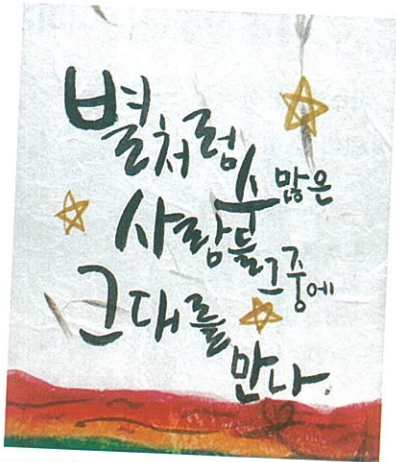 별처럼 수많은
사람들 그중에
그대를
만나.